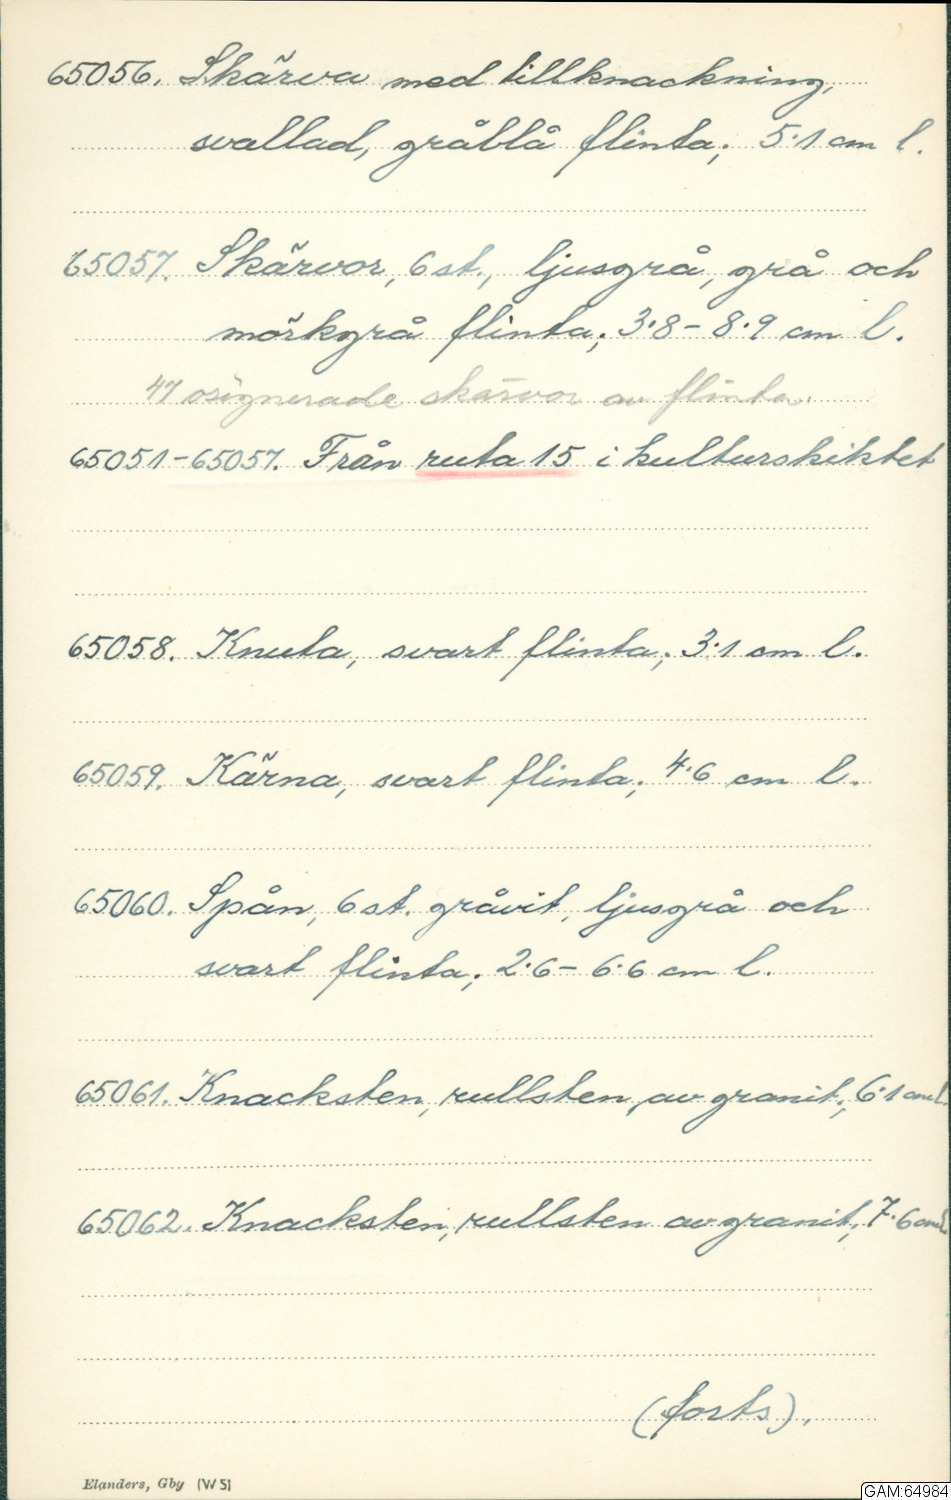 65056. Skärva med tillknackning,
svallad, gråblå flinta; 5·1 cm l.
65057. Skärvor, 6 st., ljusgrå, grå och
mörkgrå flinta; 3·8 – 8·9 cm l.
47 osignerade skärvor av flinta.
65051–65057. Från ruta 15 i kulturskiktet
65058. Knuta, svart flinta; 3·1 cm l.
65059. Kärna, svart flinta; 4·6 cm l.
65060. Spån, 6 st. gråvit, ljusgrå och
svart flinta; 2·6 – 6·6 cm l.
65061. Knacksten, rullsten, av granit; 6·1 cm l.
65062. Knacksten, rullsten av granit; 7·6 cm l.
(forts).
Elanders, Gby (W 5)
GAM:64984